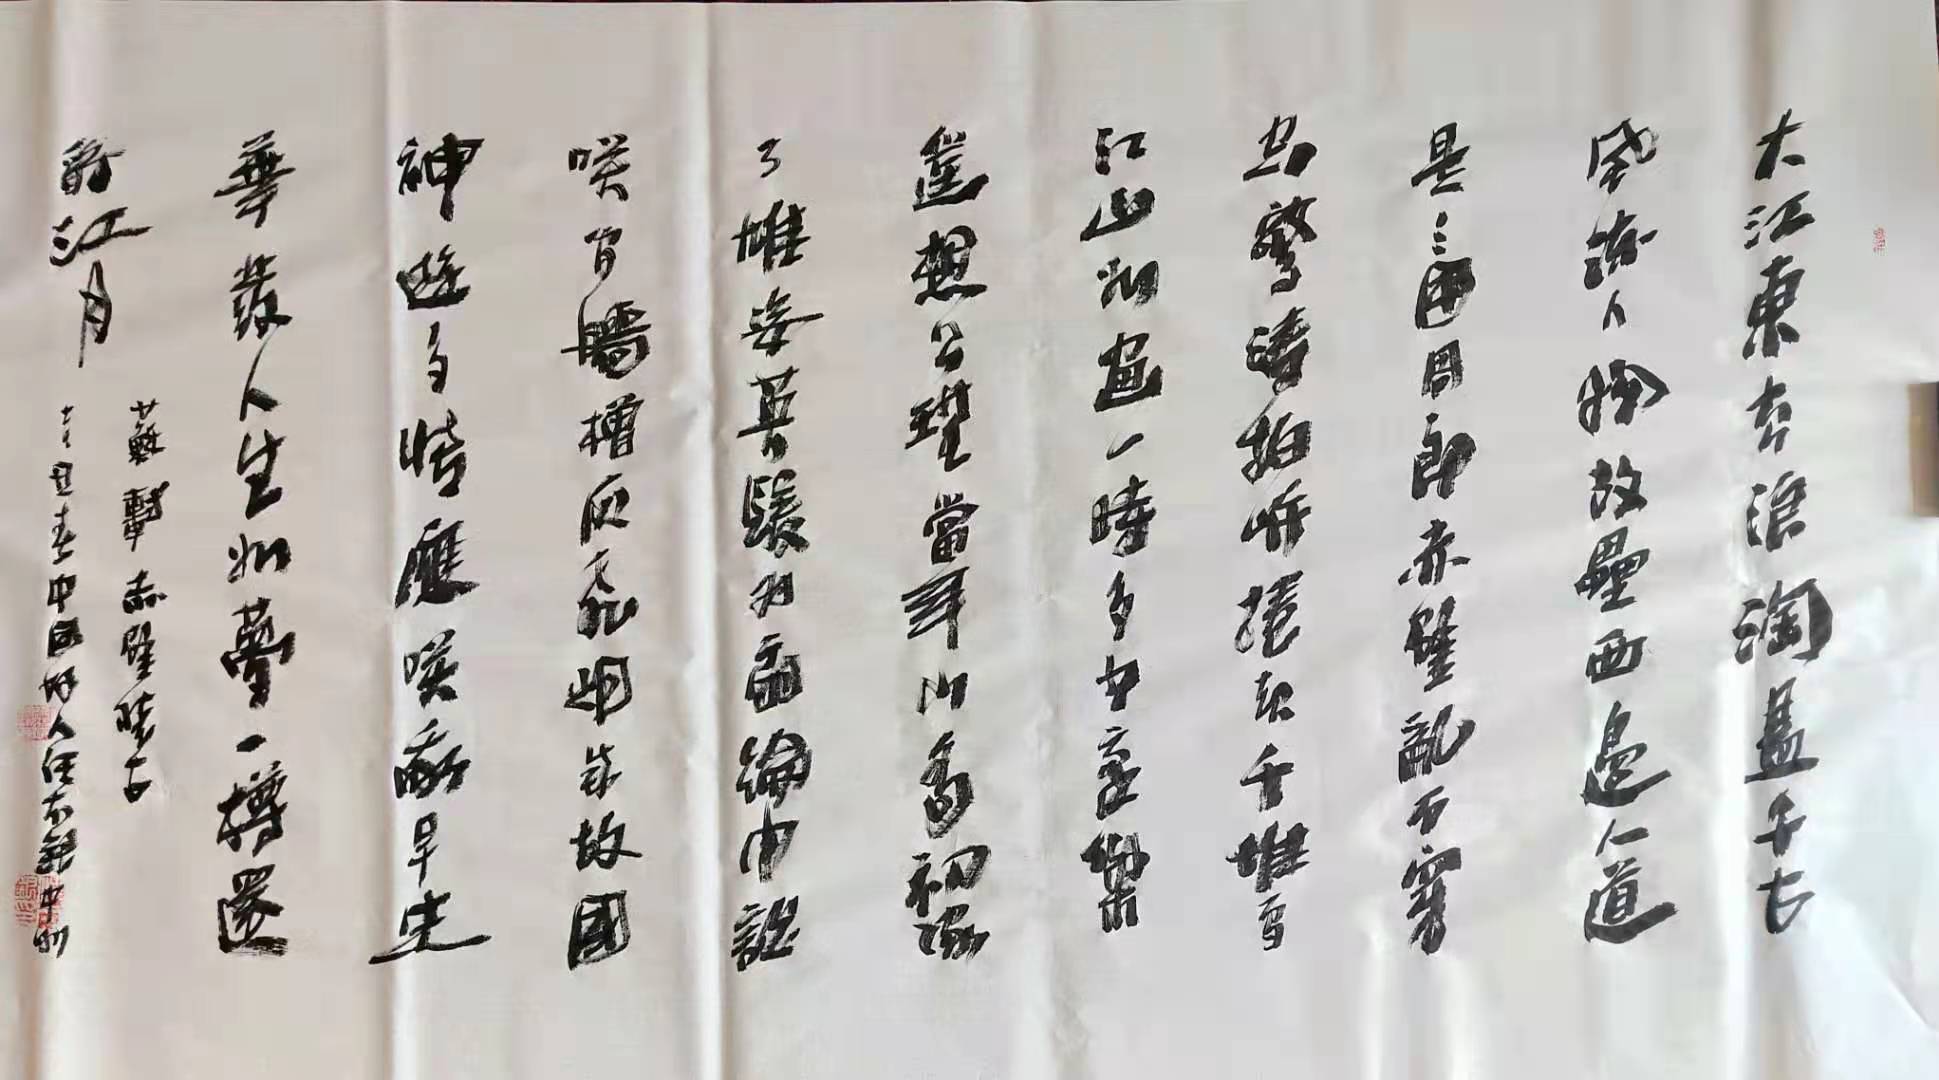 大江東去浪淘盡千古
風流人物故壘西邊人道
是三國周郎赤壁亂石穿
空驚濤拍岸捲起千堆雪
江山如畫一時多少豪傑
遙想公瑾當年小喬初嫁
了雄姿英發羽扇綸巾談
咲間檣櫓灰飛烟滅故國
神遊多情應咲我早生
華發人生如夢一樽還
酹江月
蘇軾赤壁懷古
辛丑春中國好人任